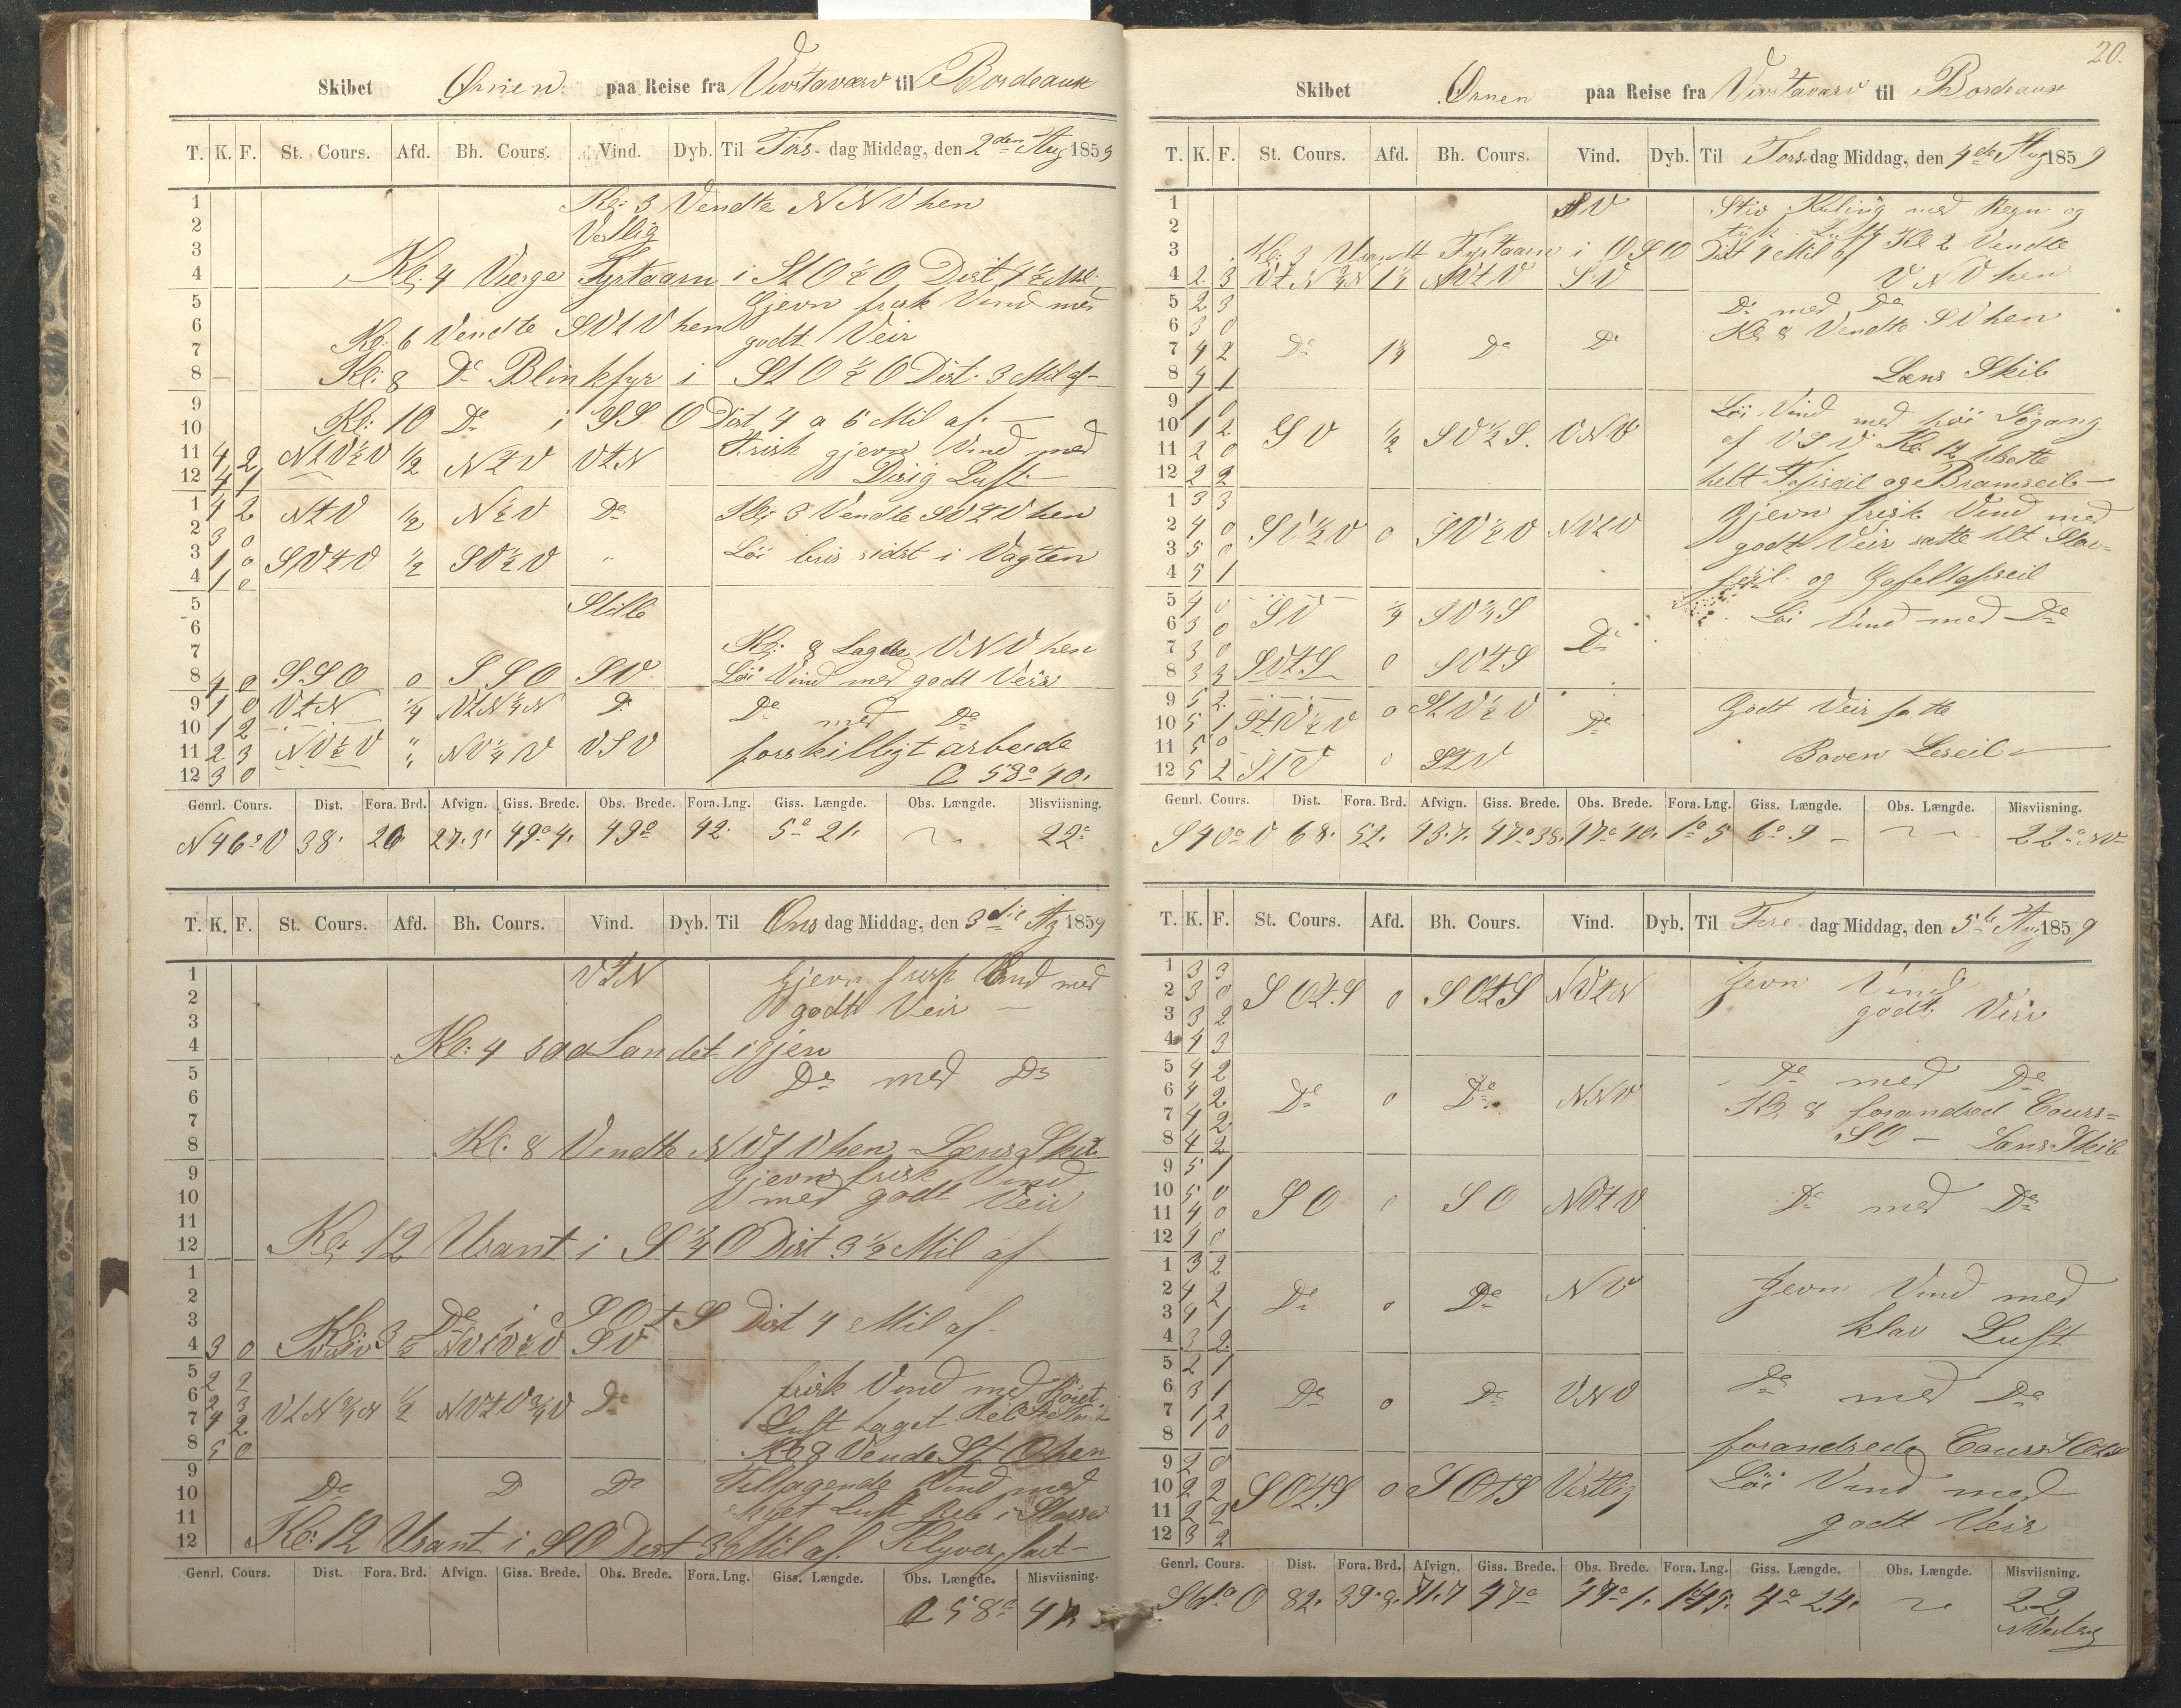 Skibet Ørnen paa Reise fra Vivstavarv til Bordeaux
T. K. F. St. Cours. Afd. Bh. Cours. Vind. Dyb. Til Tirs dag Middag, den 2den Aug 1859
1 Kl: 3 Vendte NNV hen
2 Vestlig
3
4 Kl: 4 Vierge Fyrtaarn i StO½O Dist 4½ Mil
5 Gjevn frisk Vind med
6 Kl: 6 Vendte SVtV hen
7 godt Veir
8 Kl: 8 Do Blinkfyr i StO½O Dist. 3 Mil af
9
10 Kl: 10 Do i SSO Dist 4 a 5 Mil af.
11 4 2 NtV½V ½ N½V VtN Frisk gjevn Vind med
12 4 1 Disig Luft
1 4 2 NtV ½ N½V Do Kl: 3 Vendte SVtV hen
2 3 0
3 1 0 SVtV ½ SV½V " Löi bris sidst i Vagten
4 1 0
5 Stille
6
7 Kl: 8 Lagde VNV hen
8 4 0 SSO 0 SSO SV Löi Vind med godt Veir
9 1 0 VtN ¼ VtN¼N Do Do med Do
10 1 2
11 2 3 NV½V " NV¼V VSV forskilligt arbeide
12 3 0 58° 40.
Genrl. Cours. Dist. Fora. Brd. Afvign. Giss. Brede. Obs. Brede. Fora. Lng. Giss. Længde. Obs. Længde. Misviisning.
N46°V 38. 26 27.3 49°4. 49° 42. 5° 21. 22°
T. K. F. St. Cours. Afd. Bh. Cours. Vind. Dyb. Til Ons dag Middag, den 3die Ag 1859
1 VtN Gjevn frisk Vind med
2 godt Veir
3
4 Kl: 4 saa Landet igjen
5 Do med Do
6
7
8 Kl. 8 Vendte NVtV hen Læns Skib
9 Gjevn frisk Vind
10 med godt Veir
11
12 Kl: 12 Usant i S¼O Dist. 3½ Mil af
1
2
3 Kl: 3 Do i SOtS Dist 4 Mil af
4 3 0 SV
5 2 2 frisk Vind med
6 2 3 VtN¾N ½ NVtV¾V Do
7 4 2 Luft taget
8 5 0 Kl 8 Vende StO hen
9 Do D Do Tiltagende Vind med
10
11 skyet Luft Reb i
12 Kl: 12 Usant i SO Dist 3 Mil af. Klyver fast
Genrl. Cours. Dist. Fora. Brd. Afvign. Giss. Brede. Obs. Brede. Fora. Lng. Giss. Længde. Obs. Længde. Misviisning.
58° 47
20.
Skibet Ørnen paa Reise fra Vivstavarv til Bordeaux
T. K. F. St. Cours. Afd. Bh. Cours. Vind. Dyb. Til Tors dag Middag, den 4de Aug 1859
1 SV Stiv Kuling med Regn og
2 tyk Luft Kl 2 Vendte
3 Kl: 3 Usantt Fyrtaarn i OSO Dist 4 Mil af
4 2 3 VtN¾N 1¼ NVtV SV VNV hen
5 2 3 Do med Do
6 3 0 Kl 8 Vendte SV hen
7 4 2 Do 1¼ Do Do
8 4 1 Læns Skib
9 1 0 Löi Vind med höi Søgang
10 1 2 SV ½ SV½S. VNV
11 2 0 af VSV Kl: 12 satte
12 2 2 helt Topseil og Bramseil
1 3 3 Gjevn frisk Vind med
2 4 0 SV½V 0 SV½V NVtV
3 5 0 godt Veir satte helt Stor-
4 5 1 seil og Gafeltopseil
5 4 0 SV ¼ SV¼S Löi Vind med Do
6 3 0
7 3 0 Do
8 3 3 SVtS 0 SVtS
9 5 2 Godt Veir satte
10 5 1 StV½V 0 StV½V Do
11 5 0 Boven Leseil
12 5 2 StV 0 StV
Genrl. Cours. Dist. Fora. Brd. Afvign. Giss. Brede. Obs. Brede. Fora. Lng. Giss. Længde. Obs. Længde. Misviisning.
S40°V 68. 52. 43.7. 47°38. 47°40. 1°5 6°9 22° NV
T. K. F. St. Cours. Afd. Bh. Cours. Vind. Dyb. Til Fre dag Middag, den 5te Aug 1859
1 3 3 Jevn Vind
2 3 0 SOtS 0 SOtS NVtN
3 3 2 godt Veir
4 4 3
5 4 2 Do med Do
6 4 2 Do 0 Do NNV
7 4 2 Kl 8 forandred Cours
8 4 2 SO Læns Skib
9 5 1
10 5 0 SO SO NVtV Do med Do
11 4 0
12 4 0
1 3 2
2 4 2 Do 0 Do NV Jevn Vind med
3 4 1
4 3 2 klar Luft
5 2 1
6 3 1 Do 0 Do VNV Do med Do
7 1 2
8 1 0 forandrede Cours SOtS
9 2 0
10 2 2 SOtS 0 SOtS Vestlig Löi Vind med
11 2 2
12 3 2 godt Veir
Genrl. Cours. Dist. Fora. Brd. Afvign. Giss. Brede. Obs. Brede. Fora. Lng. Giss. Længde. Obs. Længde. Misviisning.
S61°O 82. 39.8. 71.7 47° 47°1. 4°24. 22